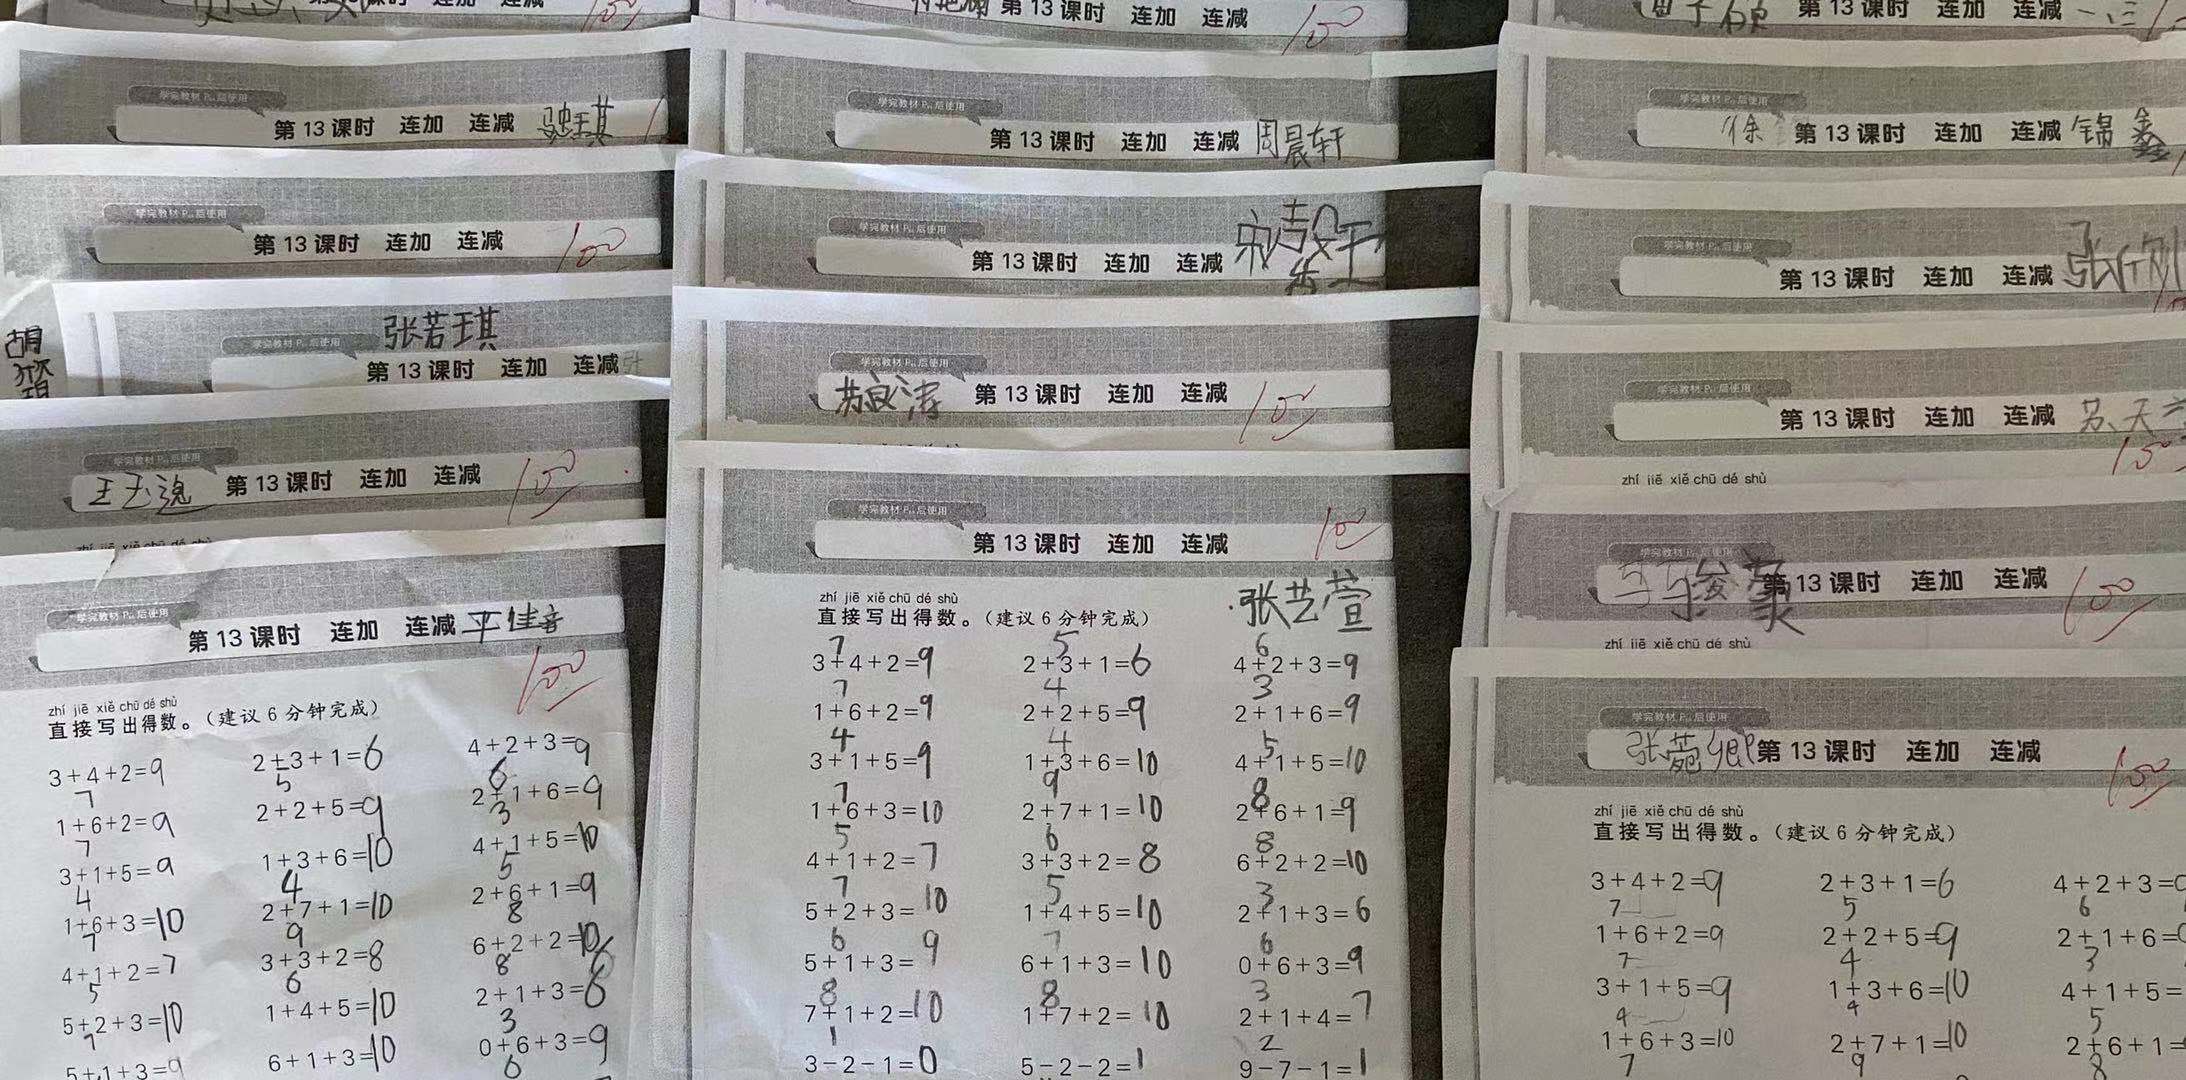 第 13 课时 连加 连减
学完教材 P 后使用
第 13 课时 连加 连减
学完教材 P 后使用
第 13 课时 连加 连减 100
张若琪
学完教材 P 后使用
第 13 课时 连加 连减
胡
学完教材 P 后使用
第 13 课时 连加 连减 100
zhí jiē xiě chū dé shù
学完教材 P 后使用
第 13 课时 连加 连减 平佳音
100
zhí jiē xiě chū dé shù
直接写出得数。(建议 6 分钟完成)
3+4+2=9 2+3+1=6 4+2+3=9
7 5 6
1+6+2=9 2+2+5=9 2+1+6=9
7 3
3+1+5=9 1+3+6=10 4+1+5=10
4 4 5
1+6+3=10 2+7+1=10 2+6+1=9
7 9 8
4+1+2=7 3+3+2=8 6+2+2=10
5 6 8
5+2+3=10 1+4+5=10 2+1+3=6
7 3
5+1+3=9 6+1+3=10 0+6+3=9
6
第 13 课时 连加 连减 100
学完教材 P 后使用
第 13 课时 连加 连减 周晨轩
学完教材 P 后使用
第 13 课时 连加 连减
学完教材 P 后使用
第 13 课时 连加 连减 100
学完教材 P 后使用
第 13 课时 连加 连减 100
张艺萱
zhí jiē xiě chū dé shù
直接写出得数。(建议 6 分钟完成)
7 5 6
3+4+2=9 2+3+1=6 4+2+3=9
7 4 3
1+6+2=9 2+2+5=9 2+1+6=9
4 4 5
3+1+5=9 1+3+6=10 4+1+5=10
7 9 8
1+6+3=10 2+7+1=10 2+6+1=9
5 6 8
4+1+2=7 3+3+2=8 6+2+2=10
7 5 3
5+2+3=10 1+4+5=10 2+1+3=6
6 7 6
5+1+3=9 6+1+3=10 0+6+3=9
8 8 3
7+1+2=10 1+7+2=10 2+1+4=7
1 2
3-2-1=0 5-2-2=1 9-7-1=1
第 13 课时 连加 连减
学完教材 P 后使用
徐 第 13 课时 连加 连减 锦鑫
学完教材 P 后使用
第 13 课时 连加 连减 张
学完教材 P 后使用
第 13 课时 连加 连减 苏天
100
zhí jiē xiě chū dé shù
学完教材 P 后使用
第 13 课时 连加 连减 100
zhí jiē xiě chū dé shù
学完教材 P 后使用
张菀卿 第 13 课时 连加 连减 100
zhí jiē xiě chū dé shù
直接写出得数。(建议 6 分钟完成)
3+4+2=9 2+3+1=6 4+2+3=
7 5 6
1+6+2=9 2+2+5=9 2+1+6=
7 4 3
3+1+5=9 1+3+6=10 4+1+5=
4 4 5
1+6+3=10 2+7+1=10 2+6+1=
7 9 8